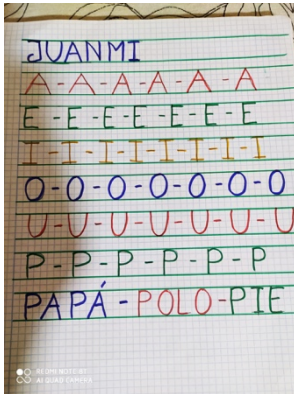 JUANMI
A-A-A-A-A-A
E-E-E-E-E-E-E
I-I-I-I-I-I-I-I
O-O-O-O-O-O-O
U-U-U-U-U-U-U
P-P-P-P-P-P
PAPÁ-POLO-PIE
REDMI NOTE 8T
AI QUAD CAMERA